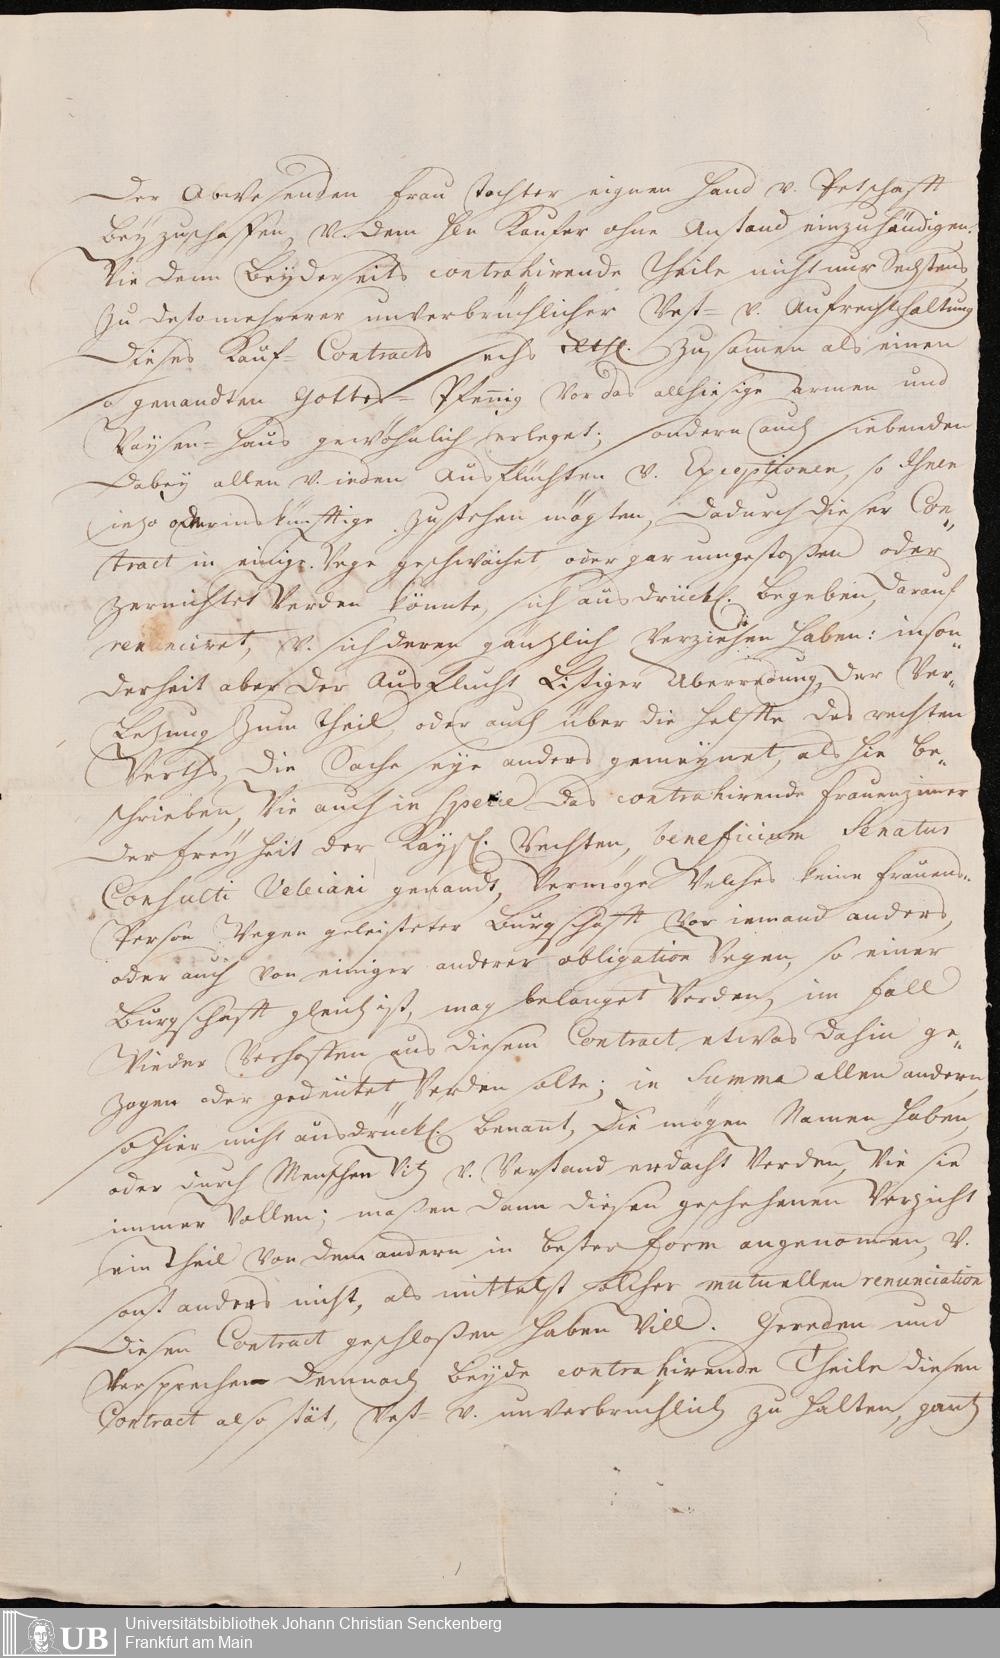 der Abwesenden Frau Tochter eignen Hand v. Petschafft
beyzuschaffen, v. dem Hln Kaufer ohne Anstand einzuhändigen.
Wie denn beyderseits contrahirende Theile nicht nur Sechstens
zu destomehrerer unverbrüchlicher Vest= v. Aufrechthaltung
dieses Kauf=Contracts sechs Rthl. zusamen als einen
so genandten Gottes=Pfennig vor das allhiesige Armen und
Waysen=Haus gewöhnlich erleget; sondern auch siebenden
dabey allen v. ieden Ausflüchten v. Exceptionen, so Ihnen
iezo oder ins künfftige zustehen mögten, dadurch dieser Con„
tract in einige Wege geschwächet oder gar umgestoßen oder
zernichtet werden könnte, sich ausdrückl. begeben, darauf
renunciret, v. sich deren gänzlich verziehen haben: inson„
derheit aber der Ausflucht listiger Überredung, der Ver„
letzung zum Theil oder auch über die Helffte des rechten
Werths, die Sache seye anders gemeynet, als hie be„
schrieben, wie auch in Specie das contrahirende Frauenzimer
der Freyheit der Kaysl. Rechten, beneficium Senatus
Consulti Velleiani genandt, vermöge welches keine Frauens„
Person wegen geleisteter Bürgschafft vor iemand anders,
oder auch von einiger anderer obligation wegen, so einer
Bürgschafft gleich ist, mag belanget werden, im Fall
wieder Verhoffen aus diesem Contract etwas dahin ge„
zogen oder gedeutet werden solte; in Summa allen andern,
so hier nicht ausdrückl. benannt, die mögen Namen haben,
oder durch Menschen Witz v. Verstand erdacht werden, wie sie
immer wollen; maßen dann diesen geschehenen Verzicht
ein Theil von dem andern in bester Form angenomen, v.
sonst anders nicht, als mittelst solcher mutuellen renunciation
diesen Contract geschloßen haben will. Gereden und
versprechen demnach beyde contrahirende Theile diesen
Contract also stät, vest= v. unverbrüchlich zu halten, gantz
Universitätsbibliothek Johann Christian Senckenberg
Frankfurt am Main
UB